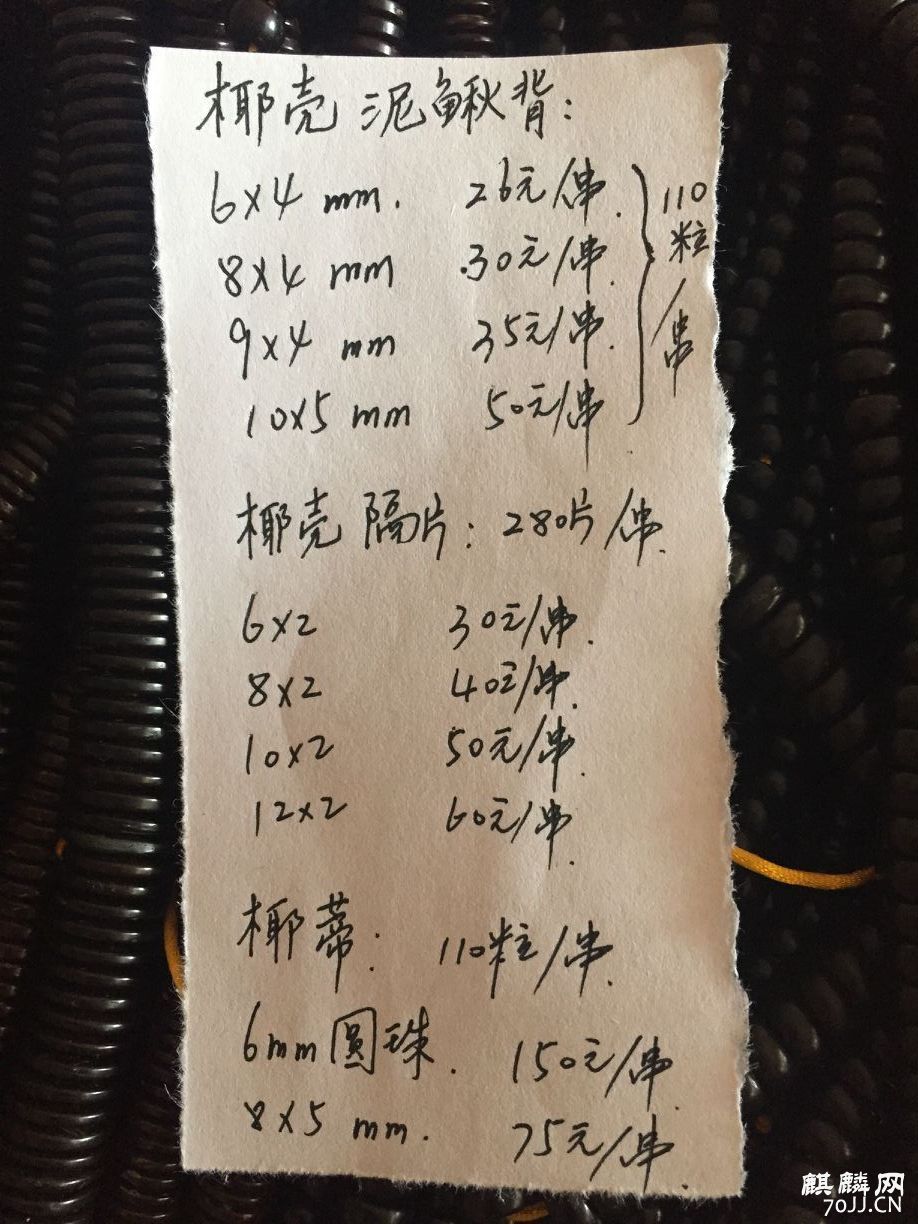 椰壳 泥鳅背:
6×4 mm. 26元/串.
8×4 mm .30元/串.
9×4 mm 35元/串.
10×5 mm 50元/串.
110
粒
/
串
椰壳 隔片: 280片/串.
6×2 30元/串.
8×2 40元/串.
10×2 50元/串.
12×2 60元/串.
椰蒂: 110粒/串.
6mm圆珠. 150元/串.
8×5 mm. 75元/串.
麒麟网
70JJ.CN